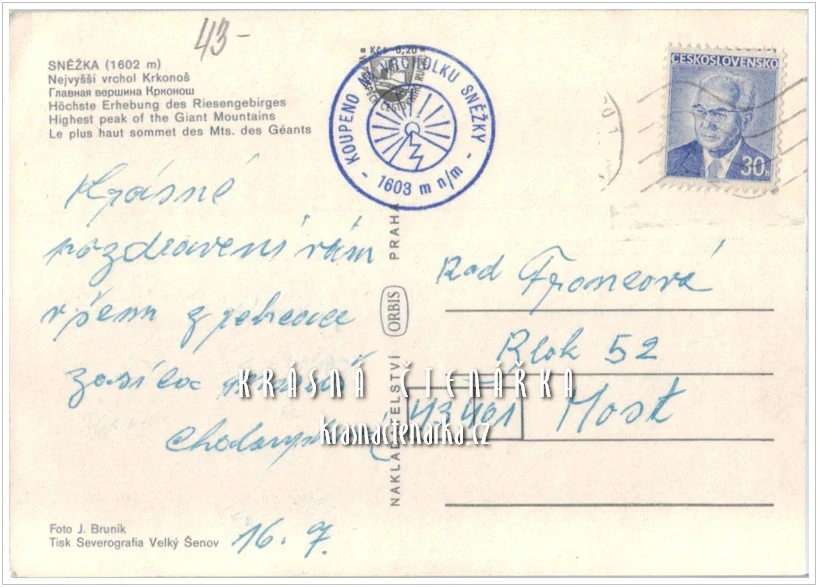 43-
SNĚŽKA (1602 m)
Nejvyšší vrchol Krkonoš
Главная вершина Крконош
Höchste Erhebung des Riesengebirges
Highest peak of the Giant Mountains
Le plus haut sommet des Mts. des Géants
Kčs 0,20
KOUPENO NA VRCHOLKU SNĚŽKY
- 1603 m n/m -
ČESKOSLOVENSKO
30
Krásné
pozdravení vám
všem z
zasílá
16. 7.
Rod Francová
Blok 52
43401 Most
NAKLADATELSTVÍ ORBIS PRAHA
KRÁSNÁ ČTENÁŘKA
krasnactenarka.cz
Foto J. Bruník
Tisk Severografia Velký Šenov